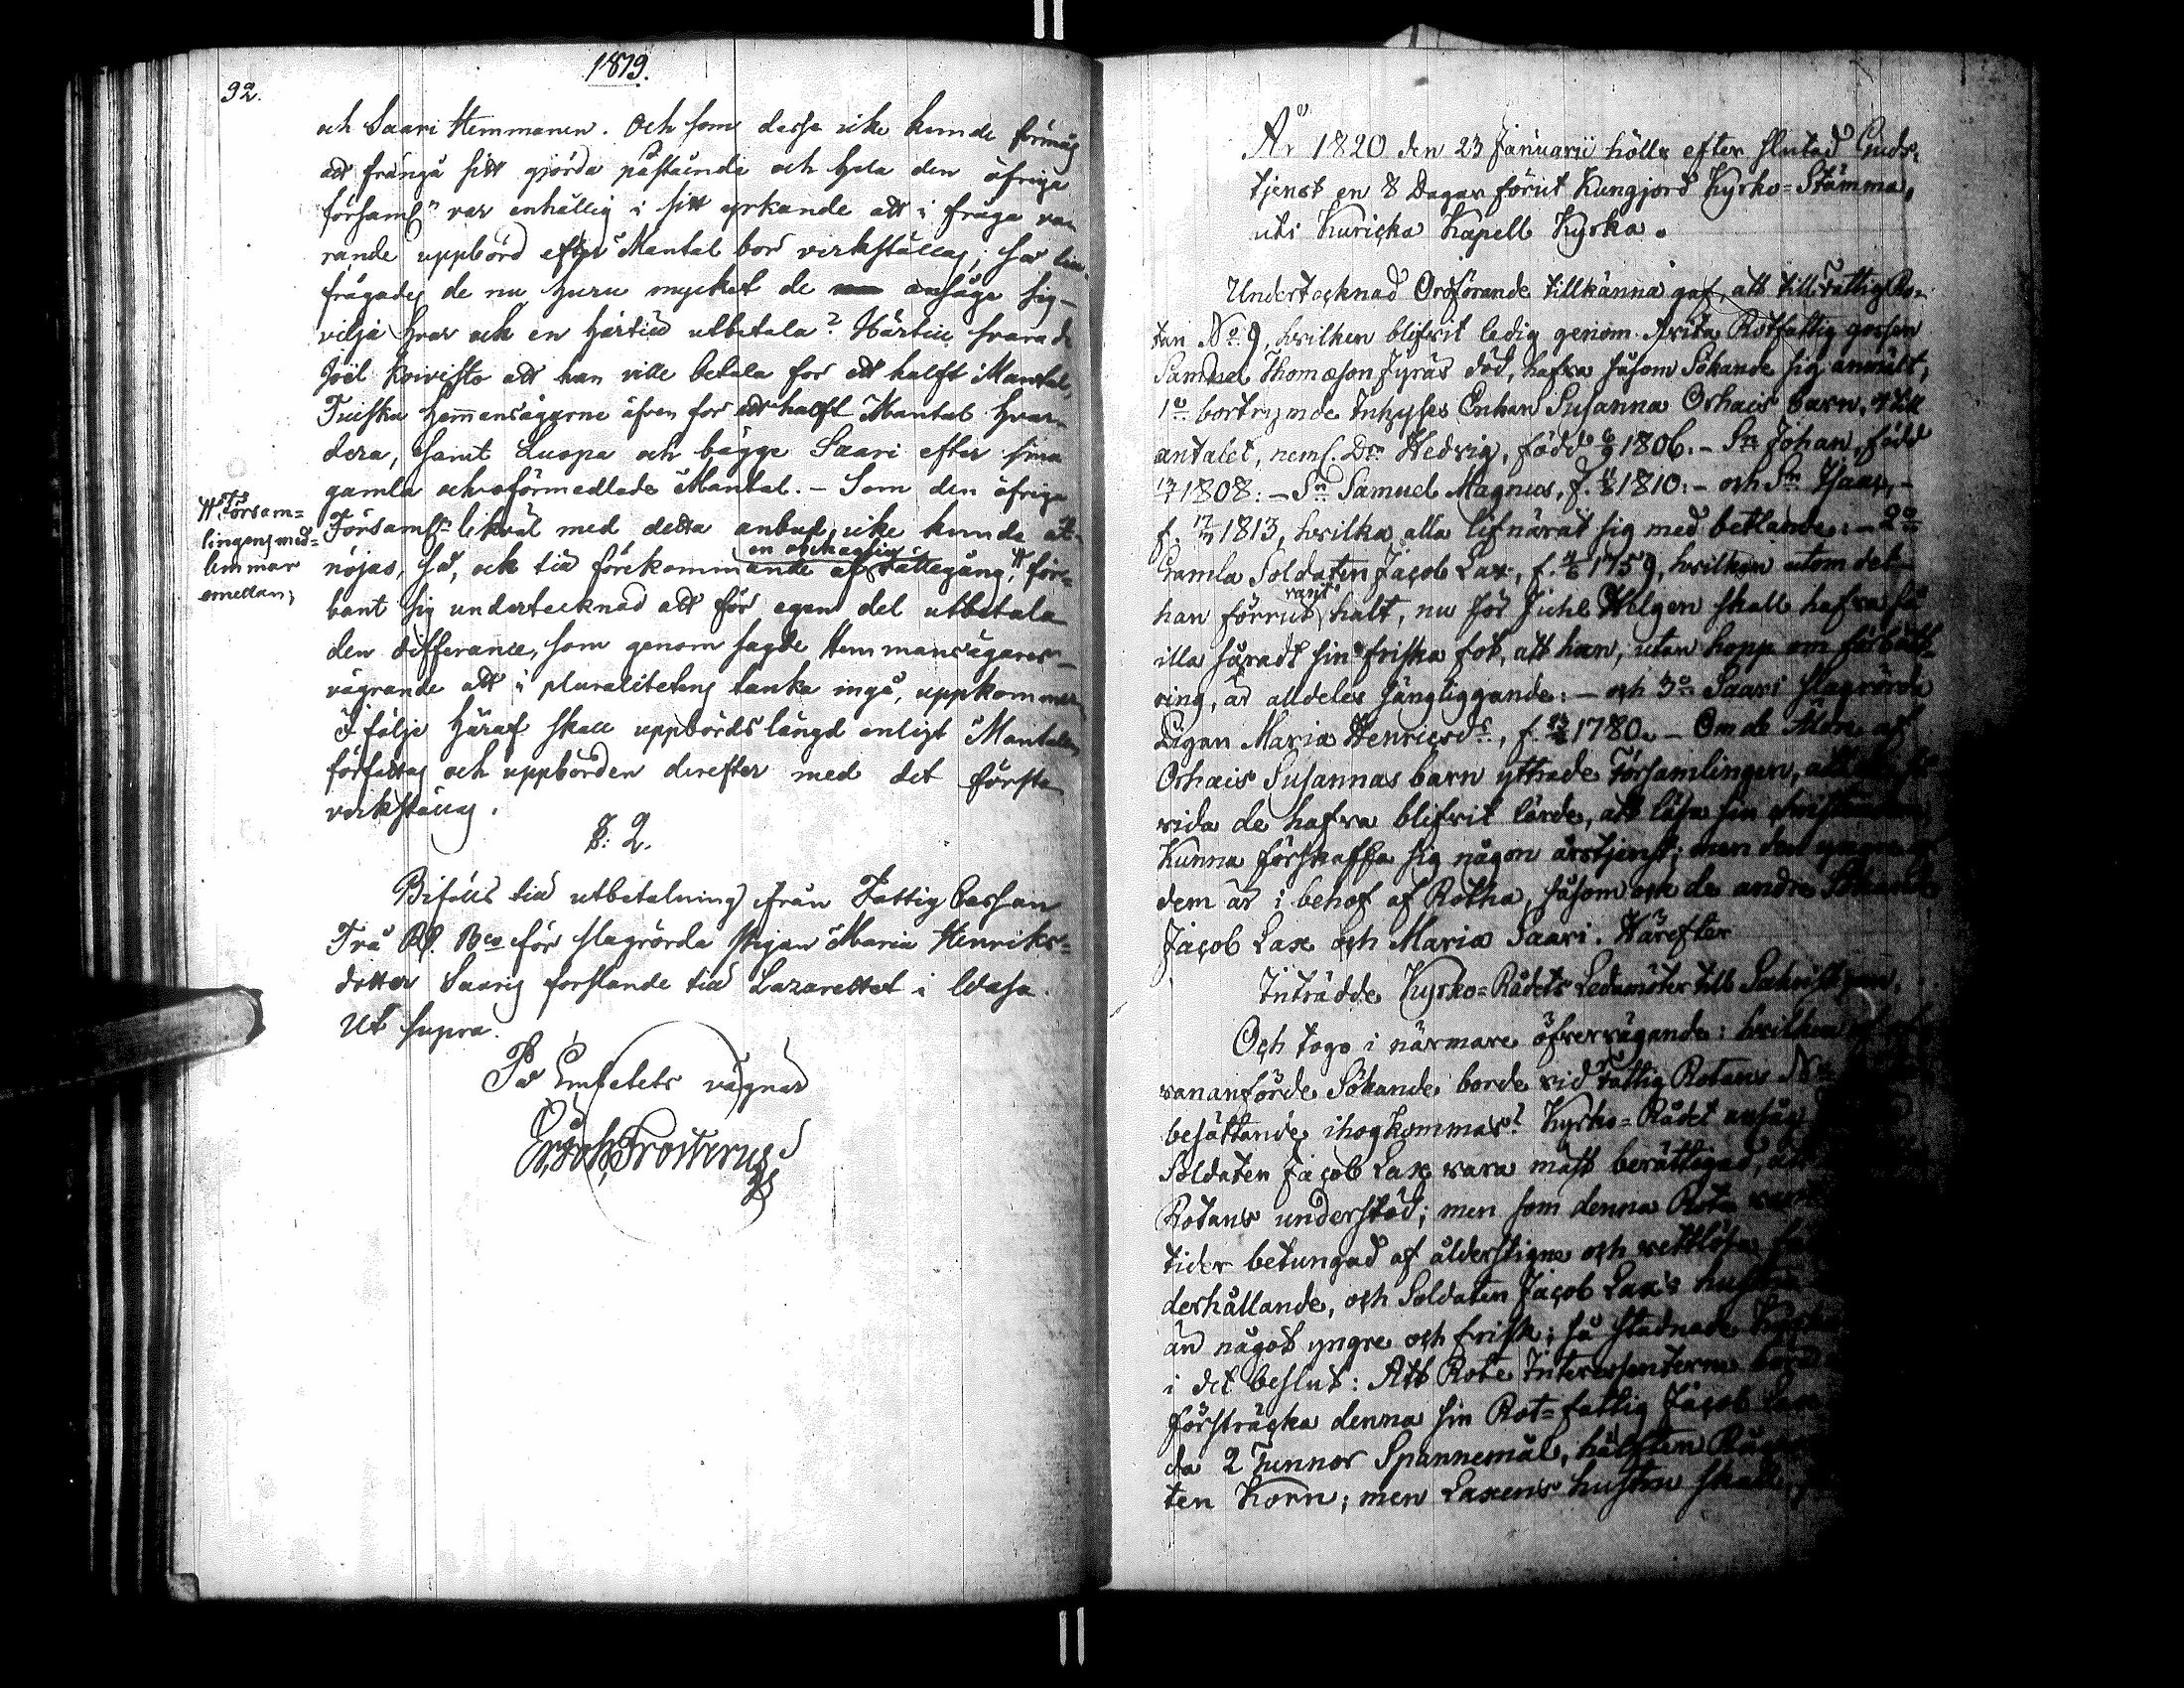 92.
1819.
och Saari Hemmanen. Och som desse icke kunde förmås
att frångå sitt gjorda påstående och hela den öfriga
församl:n var enhällig i sitt yrkande att i fråga va
rande uppbörd efter Mantal bör verkställas; så till
frågades de nu huru mycket de ansågo sig
vilja hvar och en härtill utbetala? Härtill svarade
Joël Koivisto att han ville betala for ett halft Mantal,
Tuiska Hemansägarne äfven for ett halft Mantal hvar-
dera, samt Luopa och bägge Saari efter sina
gamla och oförmedlade Mantal. - Som den öfriga
Församl:n likväl med detta anbud icke kunde åt-
nöjas, så, och till förekommande af en obehaglig rättegång, # för-
bant sig undertecknad att för egen del utbetala
den differance, som genom sagde Hemmansägares
vägrande att i pluralitetens tanka ingå, uppkommer
I följe häraf skall uppbördslängd enligt Mantalen
författas och uppbörden derefter med det första
verkställas.
# Församlingens med=
lemmar
emellan;
§. 2.
Bifölls till utbetalning ifrån Fattig Cassan
Två Rd. Bco för slagrörda Pigan Maria Henriks=
dotter Saaris forslande till Lazarettet i Wasa.
Ut supra.
På Embetets vägnar
Erich Frosterus
År 1820 den 23 Januarii hölls efter slutad Guds-
tjenst en 8 Dagar förut Kungjord Kyrko=Stämma,
uti Kuricka Kapell Kyrka.
Undertecknad Ordförande tillkänna gaf, att till Fattig Ro-
tan No. 9, hvilken blifvit ledig genom Rotfattig gossen
Samuel Thomæson Jyräs död, hafva såsom Sökande sig anmält,
1o bortrymde Inhyses Enkan Susanna Orhais barn, 4 till
antalet, neml. Dr Hedvig, född 6/9 1806. - Sn Johan, född
1808: - Sn Samuel Magnus, f. 1810: - och Sn Isaac, -
f. 1813, hvilka alla lifnärat sig med betlande: - 2o
Gamla Soldaten Jacob Lax, f. 1759, hvilken utom det
han förrut varit halt, nu för Juhl Helgen skall hafva så
illa skadt sin friska fot, att han, utan hopp om förbätt-
ring, är alldeles sängliggande: - och 3o Saari slagrörda
Pigan Maria Henricsdr, f. 1780. - Om de Älsre af
Orhais Susannas barn yttrade Församlingen, att
vida de hafva blifvit lärde, att läsa sin
Kunna förskaffa sig någon årstjenst; men den yngre
dem är i behof af Rotha, såsom ock de andre Sökande
Jacob Lax och Maria Saari. Härefter
Inträdde Kyrko=Rådets Ledamöter till Sakristian,
Och togo i närmare öfvervägande: hvilken af
vananförde Sökande borde vid Fattig Rotans No
besättande ihogkommas? Kyrko=Rådet ansåg
Soldaten Jacob Lax vara mäst berättigad,
Rotans understöd; men som denna Rota
tider betungad af ålderstigne och vettlösa
derhållande, och Soldaten Jacob Lax's hustru
än något yngre och frisk; så stadnade Kyrko
i det beslut: Att Rote Interessenterne
försträcka denna sin Rot=fattig Jacob Lax
da 2 Tunnor Spannemål, hälften Råg
ten Korn; men Laxens hustru skall